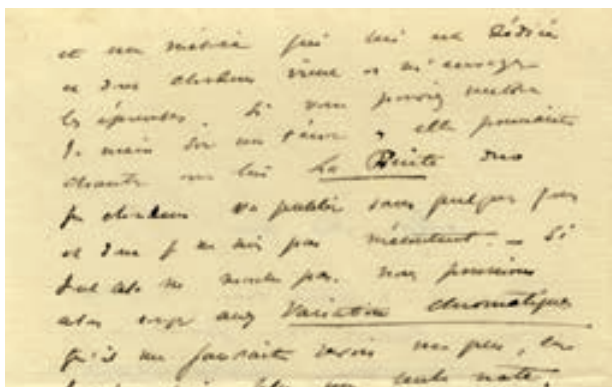 et une mélodie qui lui est dédiée
et dont Choudens vient de m'envoyer
les épreuves. Si vous pouviez mettre
la main sur un ténor, elle pourrait
chanter avec lui La Fuite duo
que Choudens va publier sous quelques jours
et dont je ne suis pas mécontent. — Si
cela ne marche pas. nous pourrions
alors songer aux Variations chromatiques
qu'il me faudrait revoir un peu, car
une seule note,